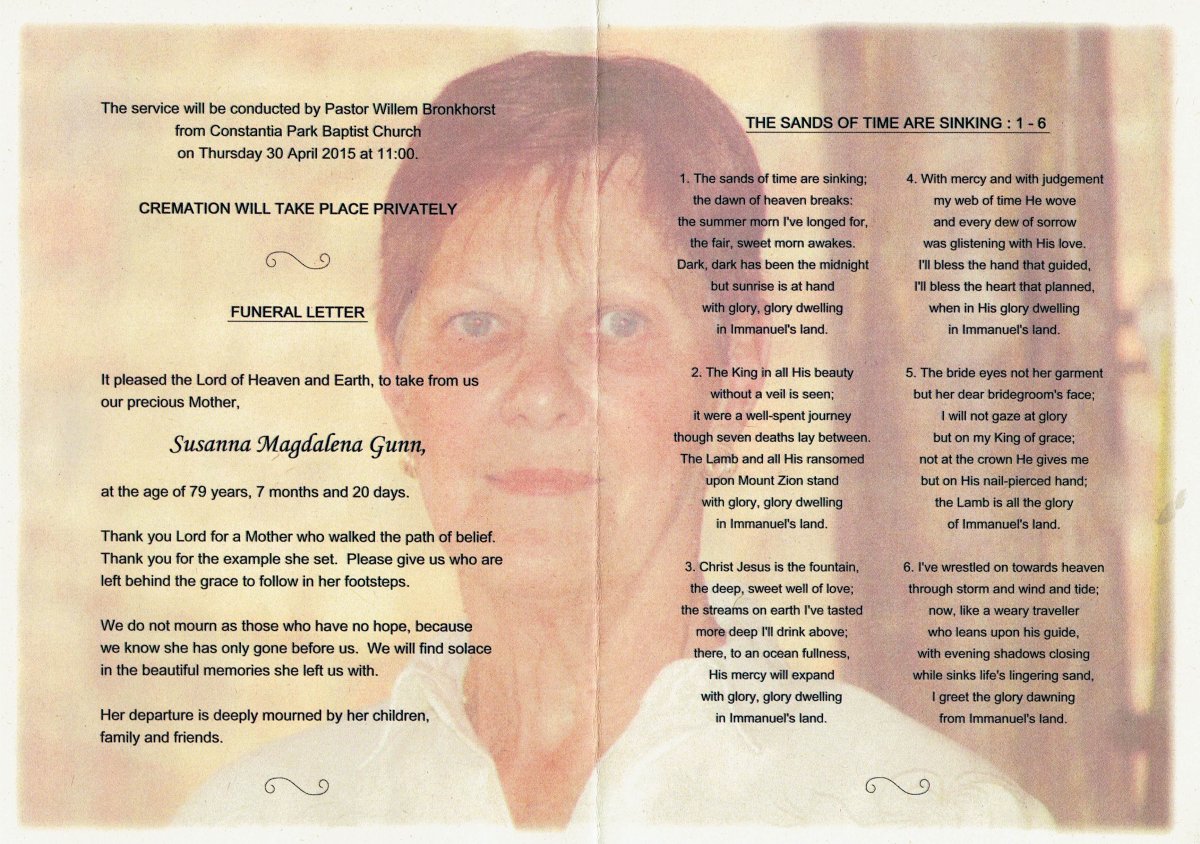 The service will be conducted by Pastor Willem Bronkhorst
from Constantia Park Baptist Church
on Thursday 30 April 2015 at 11:00.
CREMATION WILL TAKE PLACE PRIVATELY
FUNERAL LETTER
It pleased the Lord of Heaven and Earth, to take from us
our precious Mother,
Susanna Magdalena Gunn,
at the age of 79 years, 7 months and 20 days.
Thank you Lord for a Mother who walked the path of belief.
Thank you for the example she set.  Please give us who are
left behind the grace to follow in her footsteps.
We do not mourn as those who have no hope, because
we know she has only gone before us.  We will find solace
in the beautiful memories she left us with.
Her departure is deeply mourned by her children,
family and friends.
THE SANDS OF TIME ARE SINKING : 1 - 6
1. The sands of time are sinking;
the dawn of heaven breaks:
the summer morn I've longed for,
the fair, sweet morn awakes.
Dark, dark has been the midnight
but sunrise is at hand
with glory, glory dwelling
in Immanuel's land.
2. The King in all His beauty
without a veil is seen;
it were a well-spent journey
though seven deaths lay between.
The Lamb and all His ransomed
upon Mount Zion stand
with glory, glory dwelling
in Immanuel's land.
3. Christ Jesus is the fountain,
the deep, sweet well of love;
the streams on earth I've tasted
more deep I'll drink above;
there, to an ocean fullness,
His mercy will expand
with glory, glory dwelling
in Immanuel's land.
4. With mercy and with judgement
my web of time He wove
and every dew of sorrow
was glistening with His love.
I'll bless the hand that guided,
I'll bless the heart that planned,
when in His glory dwelling
in Immanuel's land.
5. The bride eyes not her garment
but her dear bridegroom's face;
I will not gaze at glory
but on my King of grace;
not at the crown He gives me
but on His nail-pierced hand;
the Lamb is all the glory
of Immanuel's land.
6. I've wrestled on towards heaven
through storm and wind and tide;
now, like a weary traveller
who leans upon his guide,
with evening shadows closing
while sinks life's lingering sand,
I greet the glory dawning
from Immanuel's land.